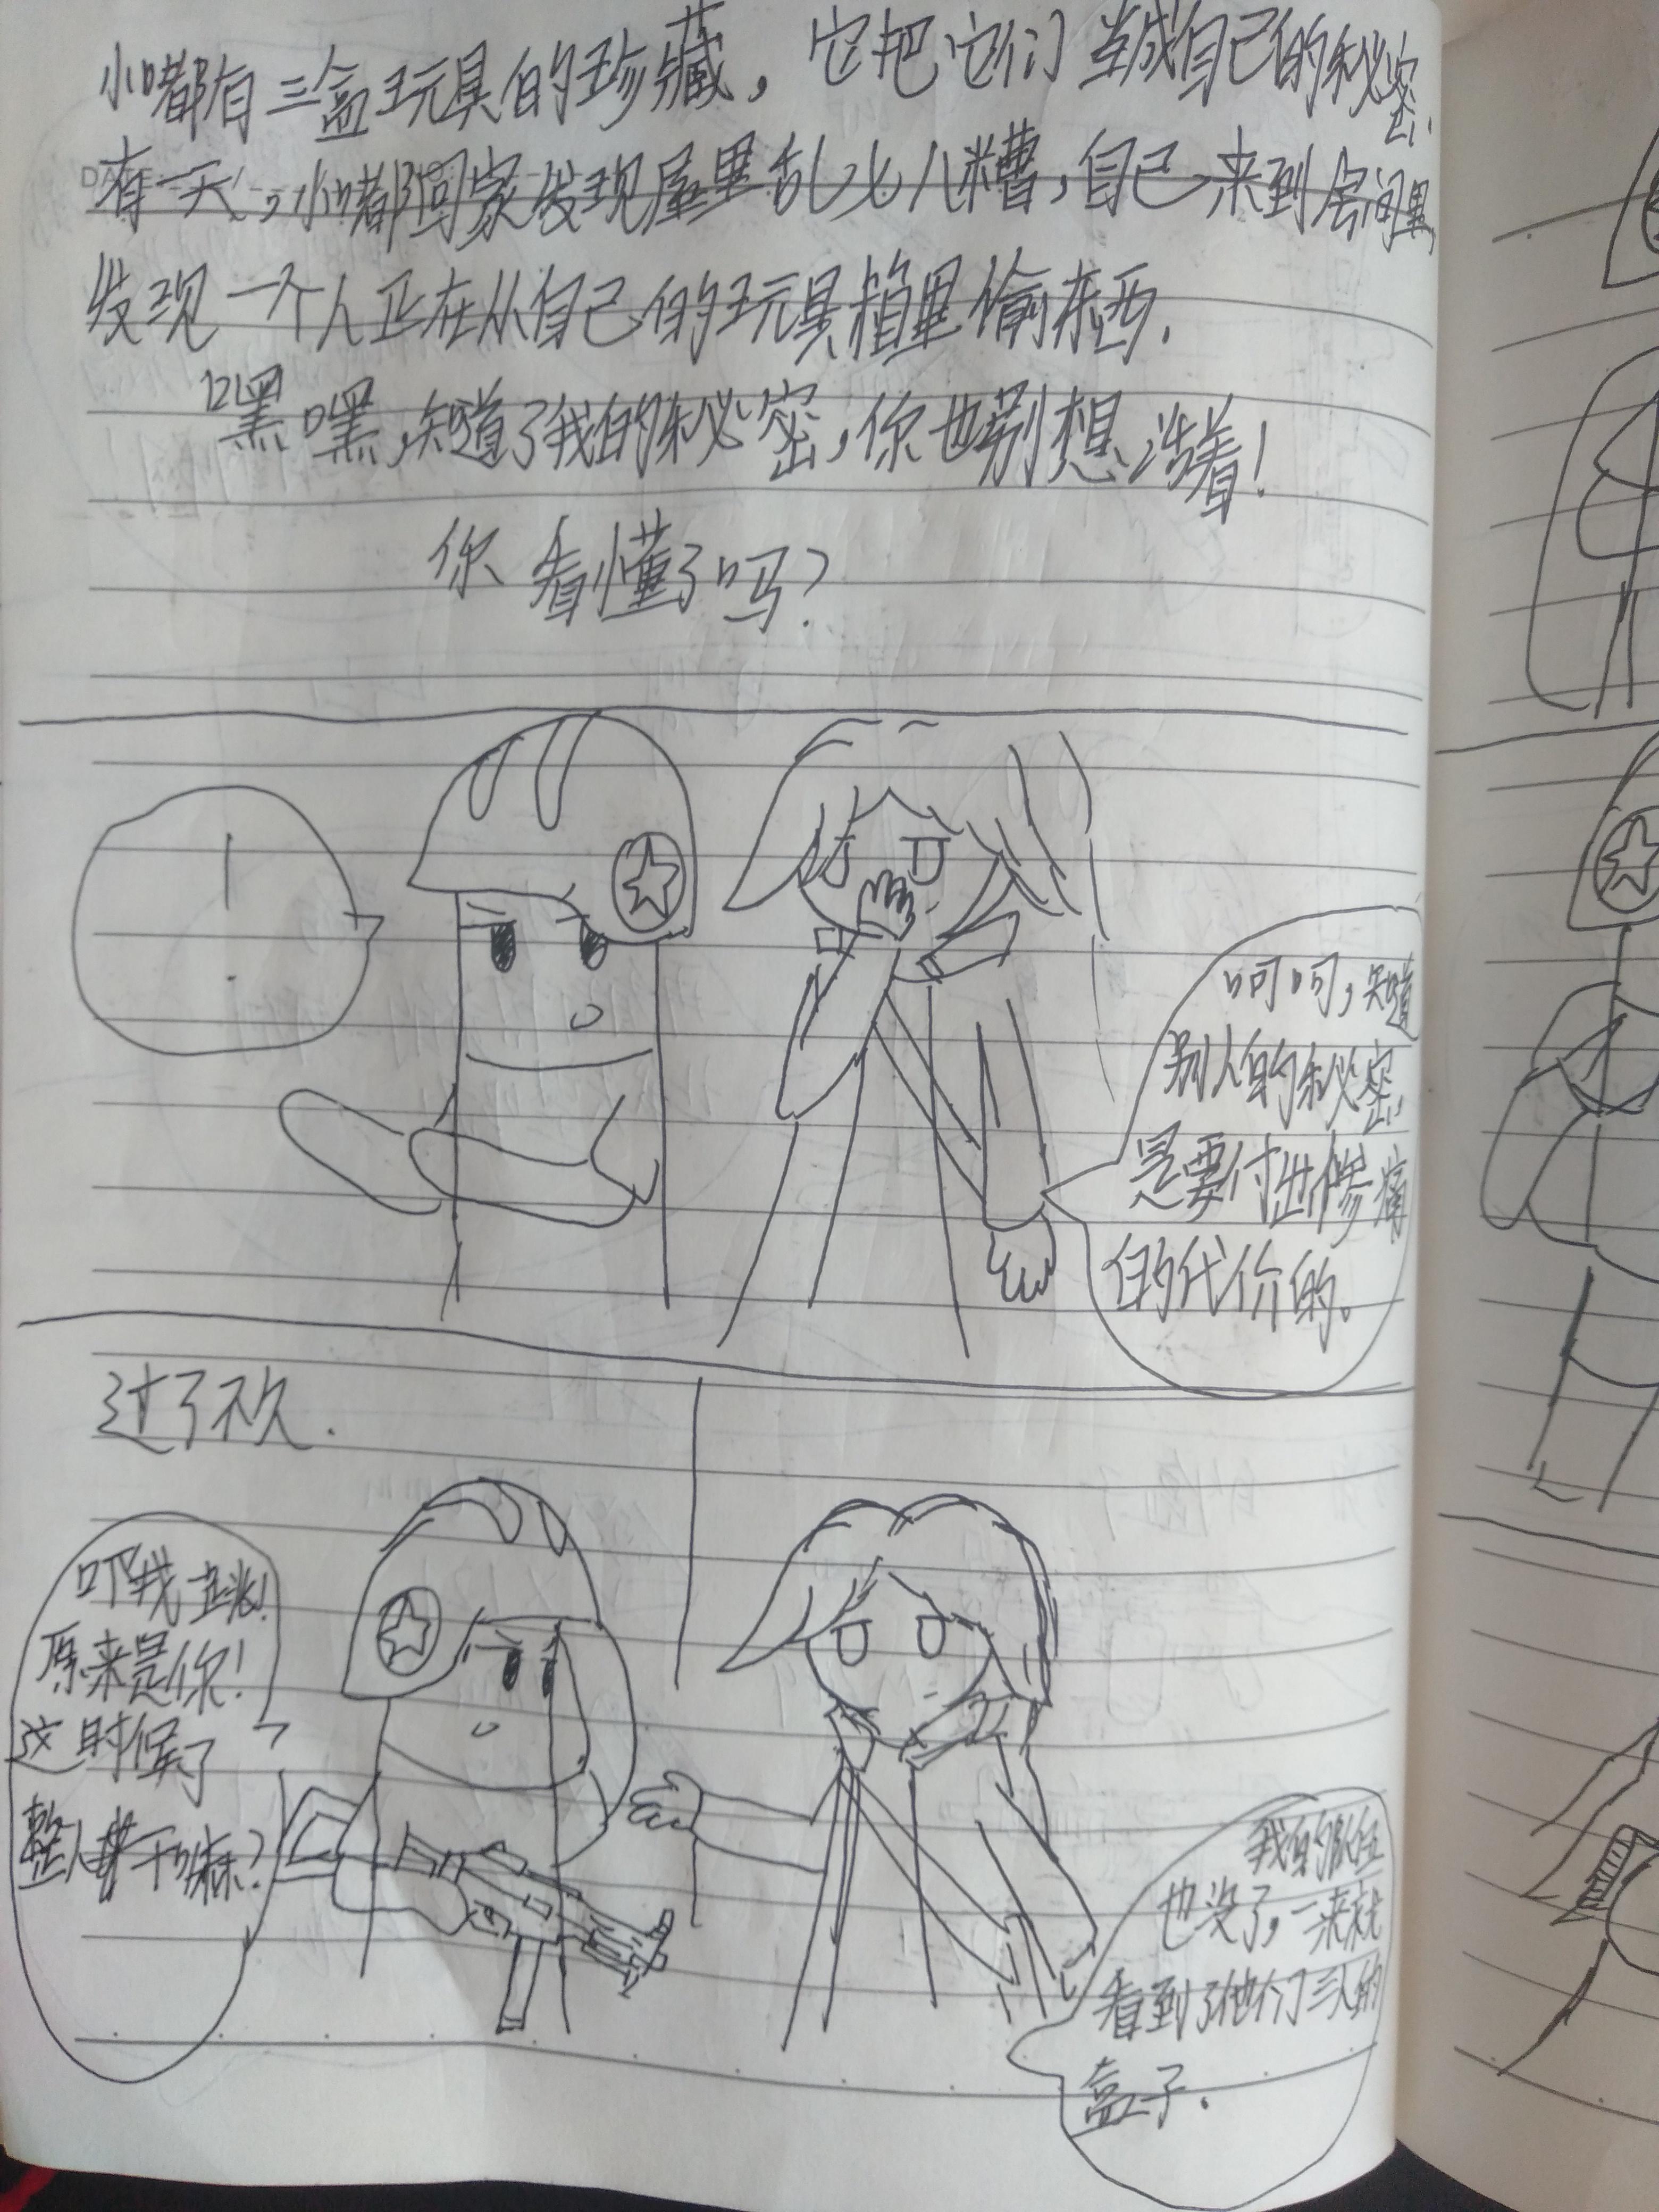 小嘟有三盒玩具的珍藏，它把它们当成自己的秘密.
有一天，小嘟回家发现屋里乱七八糟，自己来到房间里,
发现一个人正在从自己的玩具箱里偷东西.
嘿嘿,知道了我的秘密,你也别想活着!
你看懂了吗?
!
呵呵,知道
别人的秘密,
是要付出惨痛
的代价的。
过了不久.
吓我一跳!
原来是你!
这时候了
整人干嘛?
我的
也没了,一来就
看到了他们三人的
盒子.